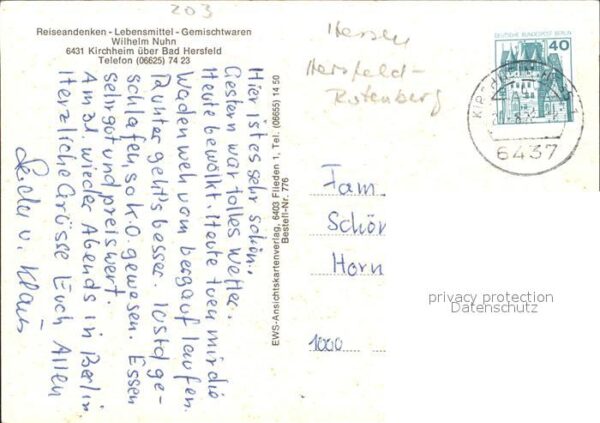 203
Reiseandenken - Lebensmittel - Gemischtwaren
Wilhelm Nuhn
6431 Kirchheim über Bad Hersfeld
Telefon (06625) 74 23
Hier ist es sehr schön.
Gestern war tolles Wetter.
Heute bewölkt. Heute tuen mir die
Waden weh vom bergauf laufen.
Runter geht's besser. 1 Std ge-
schlafen, so k.O. gewesen. Essen
sehr gut und preiswert.
Am 31. wieder Abends in Berlin
Herzliche Grüsse Euch Allen
v. Klaus
EWS-Ansichtskartenverlag, 6403 Flieden 1, Tel. (06655) 14 50
Bestell-Nr. 776
Hessen
Hersfeld-
Rotenberg
DEUTSCHE BUNDESPOST BERLIN
40
6437
Fam
Schör
Horn
1000
privacy protection
Datenschutz